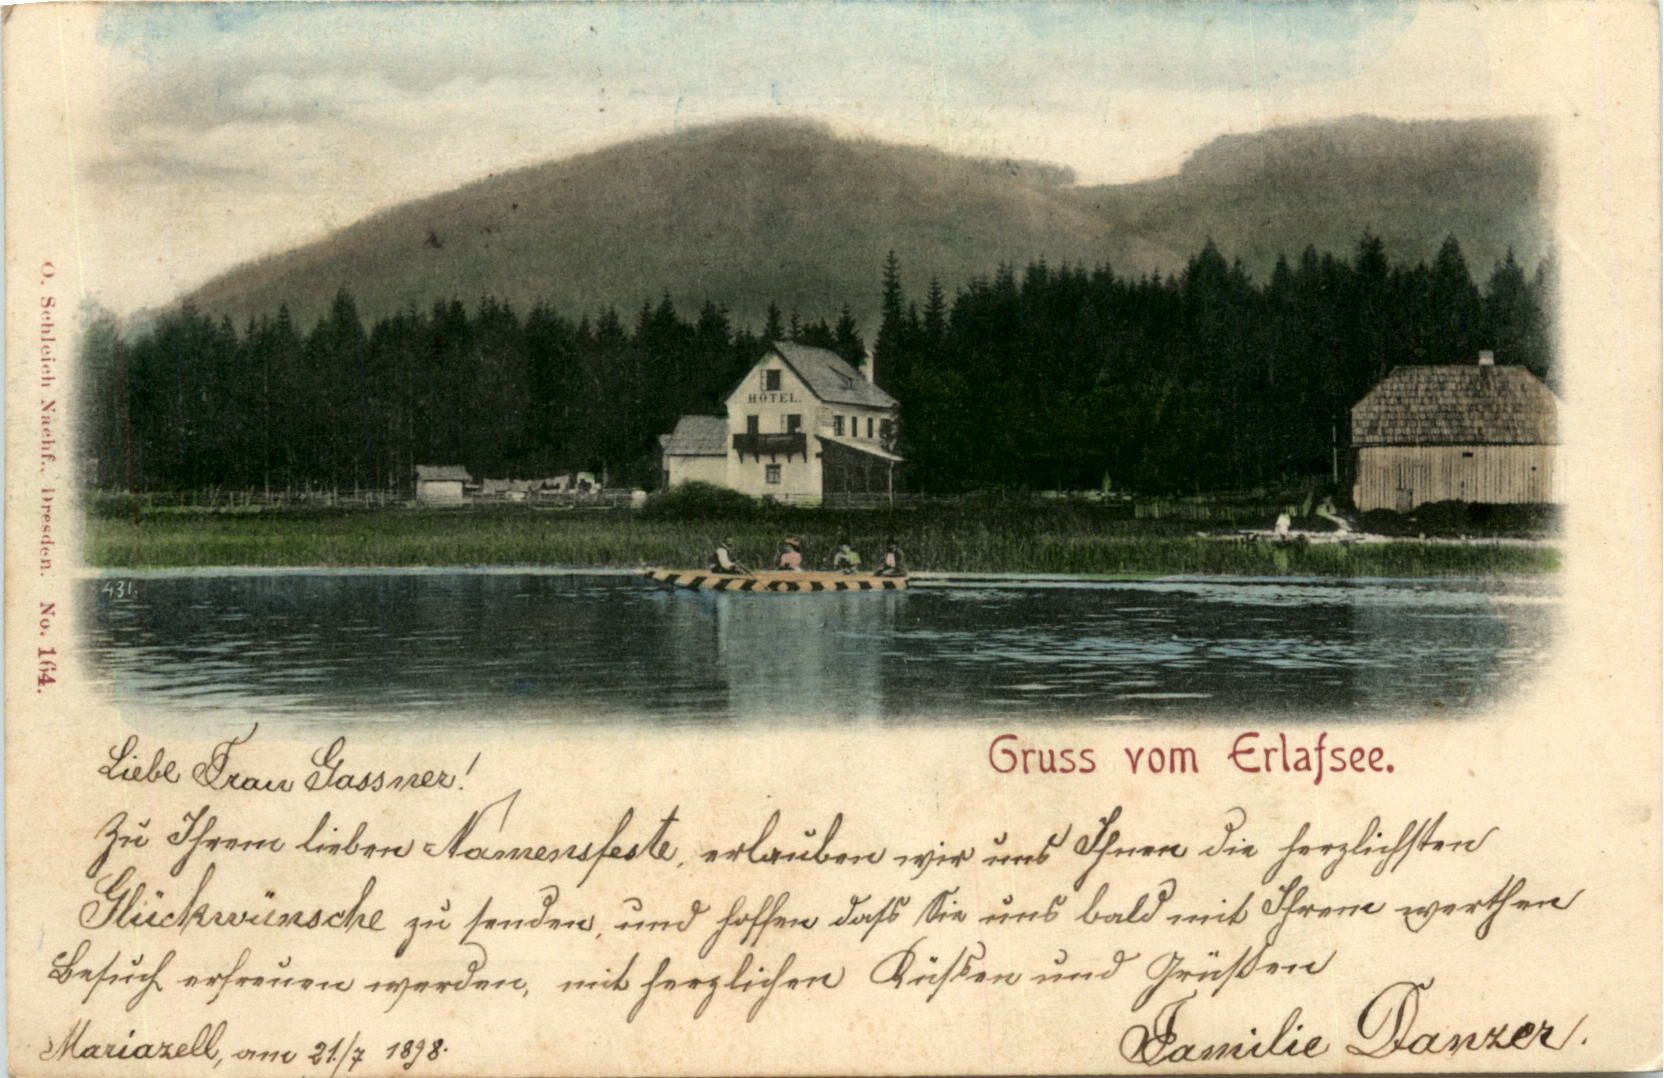 HOTEL.
431.
O. Schleich Nachf., Dresden. No. 164.
Gruss vom Erlafsee.
Liebe Frau Gassner!
Zu Ihrem lieben Namensfeste, erlauben wir uns Ihnen die herzlichsten
Glückwünsche zu senden, und hoffen daß Sie uns bald mit Ihrem werthen
Besuch erfreuen werden, mit herzlichen Küßen und Grüßen
Familie Danzer.
Mariazell, am 21./7 1898.